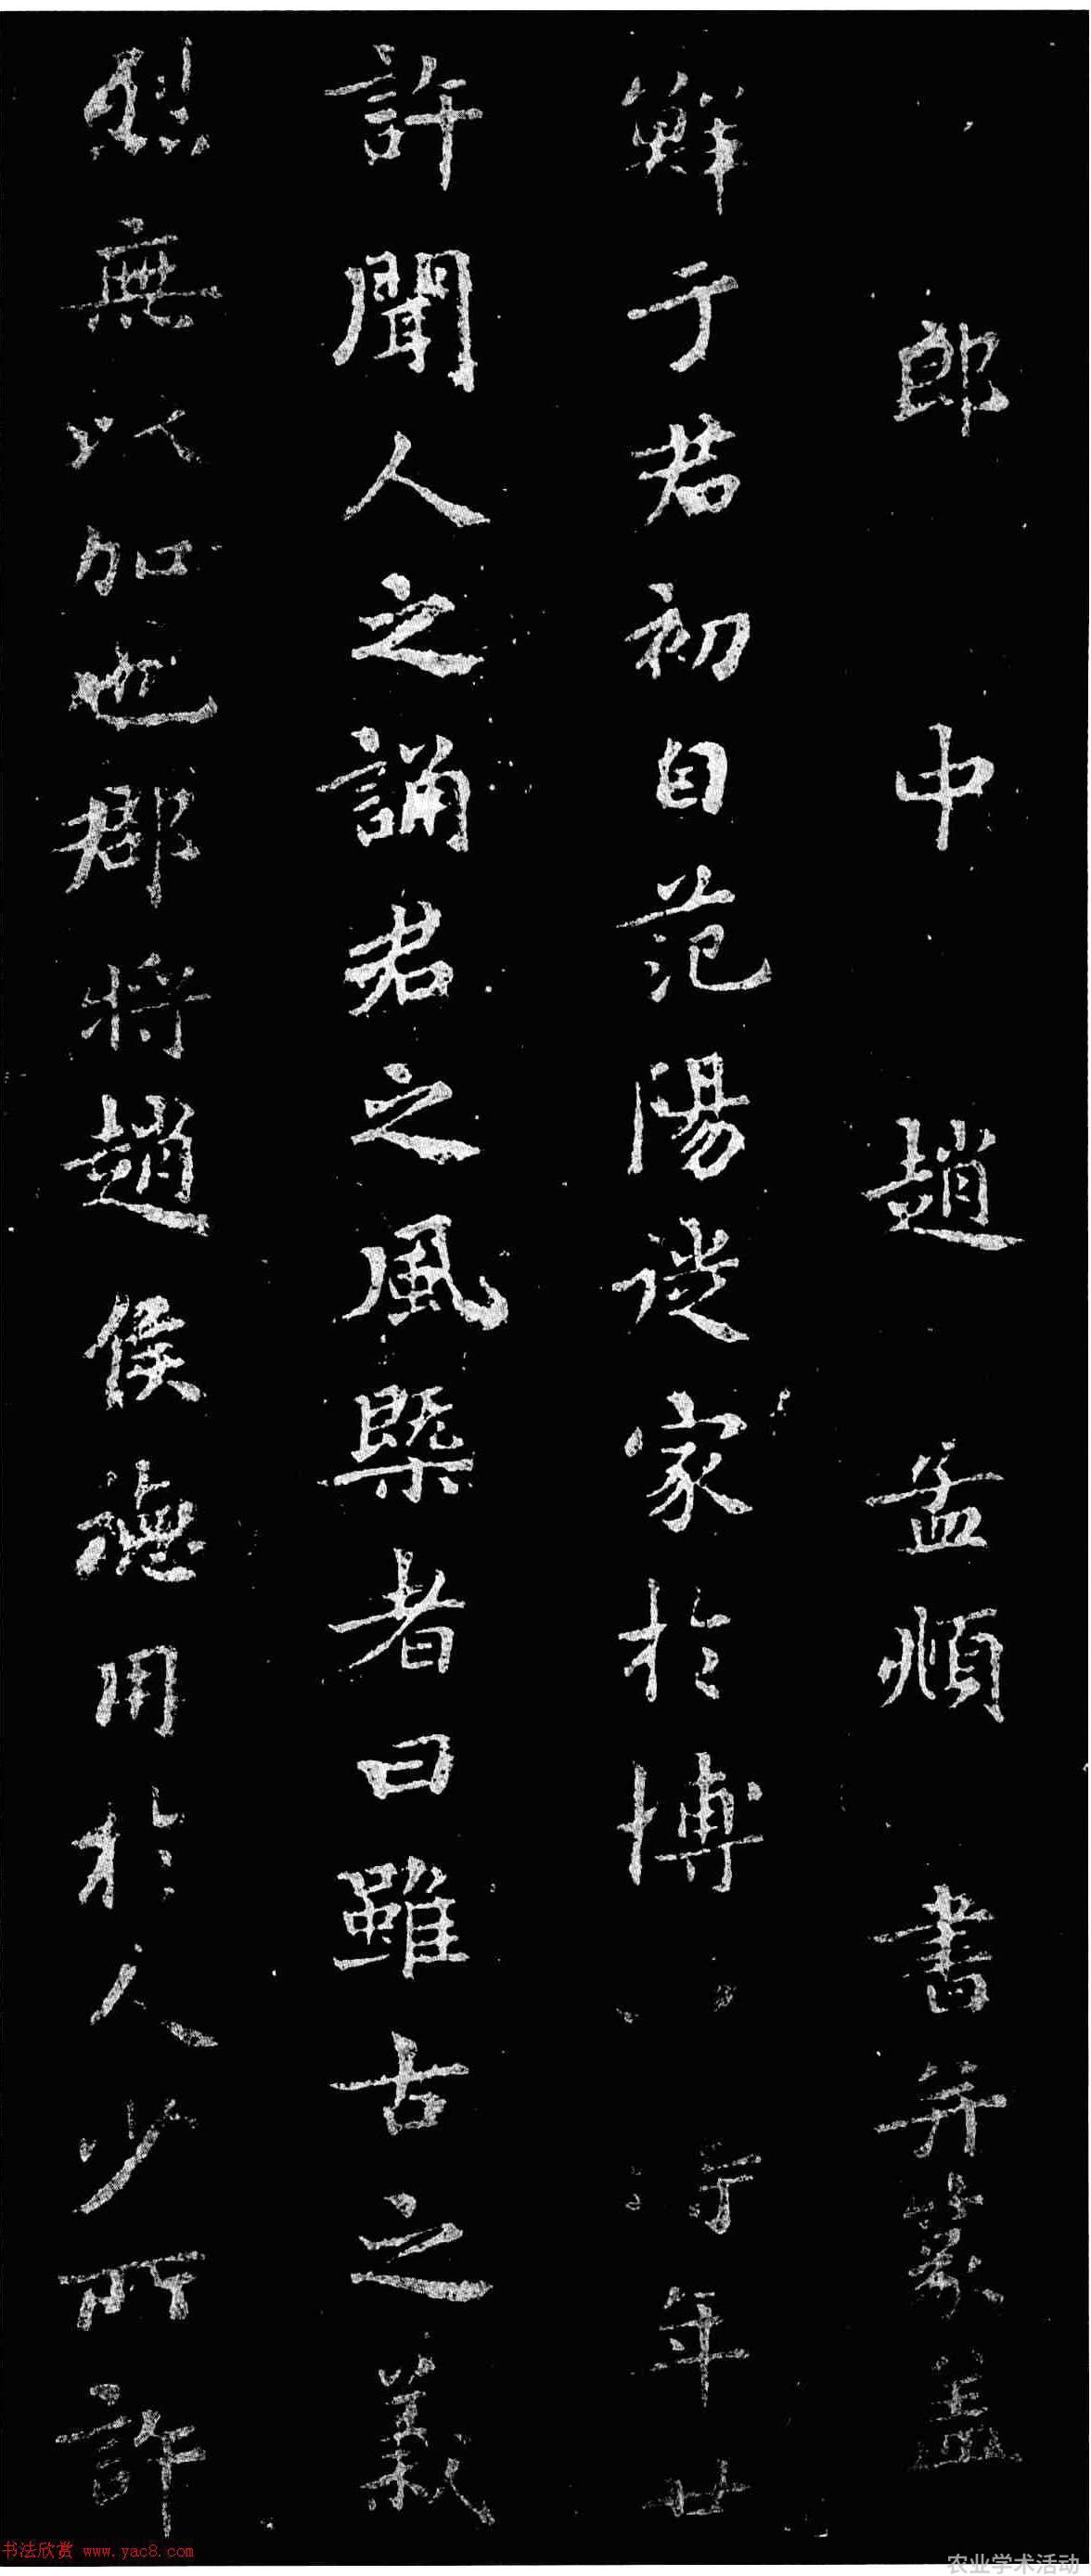 郎中趙孟頫書并篆盖
鮮于君初自范陽從家於博行年廿
許聞人之誦君之風槩者曰雖古之義
烈無以加也郡將趙侯德用於人少所許
书法欣赏 www.yac8.com
农业学术活动